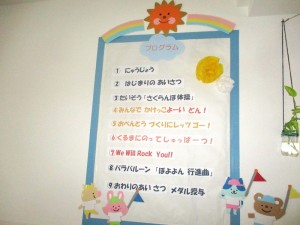 プログラム
① にゅうじょう
② はじまりの あいさつ
③ たいそう「さくらんぼ体操」
④ みんなで かけっこよーい どん！
⑤ おべんとう づくりにレッツ ゴー！
⑥ くるまにのって しゅっぱーつ！
⑦ We Will Rock You!!
⑧ パラバルーン「ぽよよん 行進曲」
⑨ おわりのあいさつ メダル授与